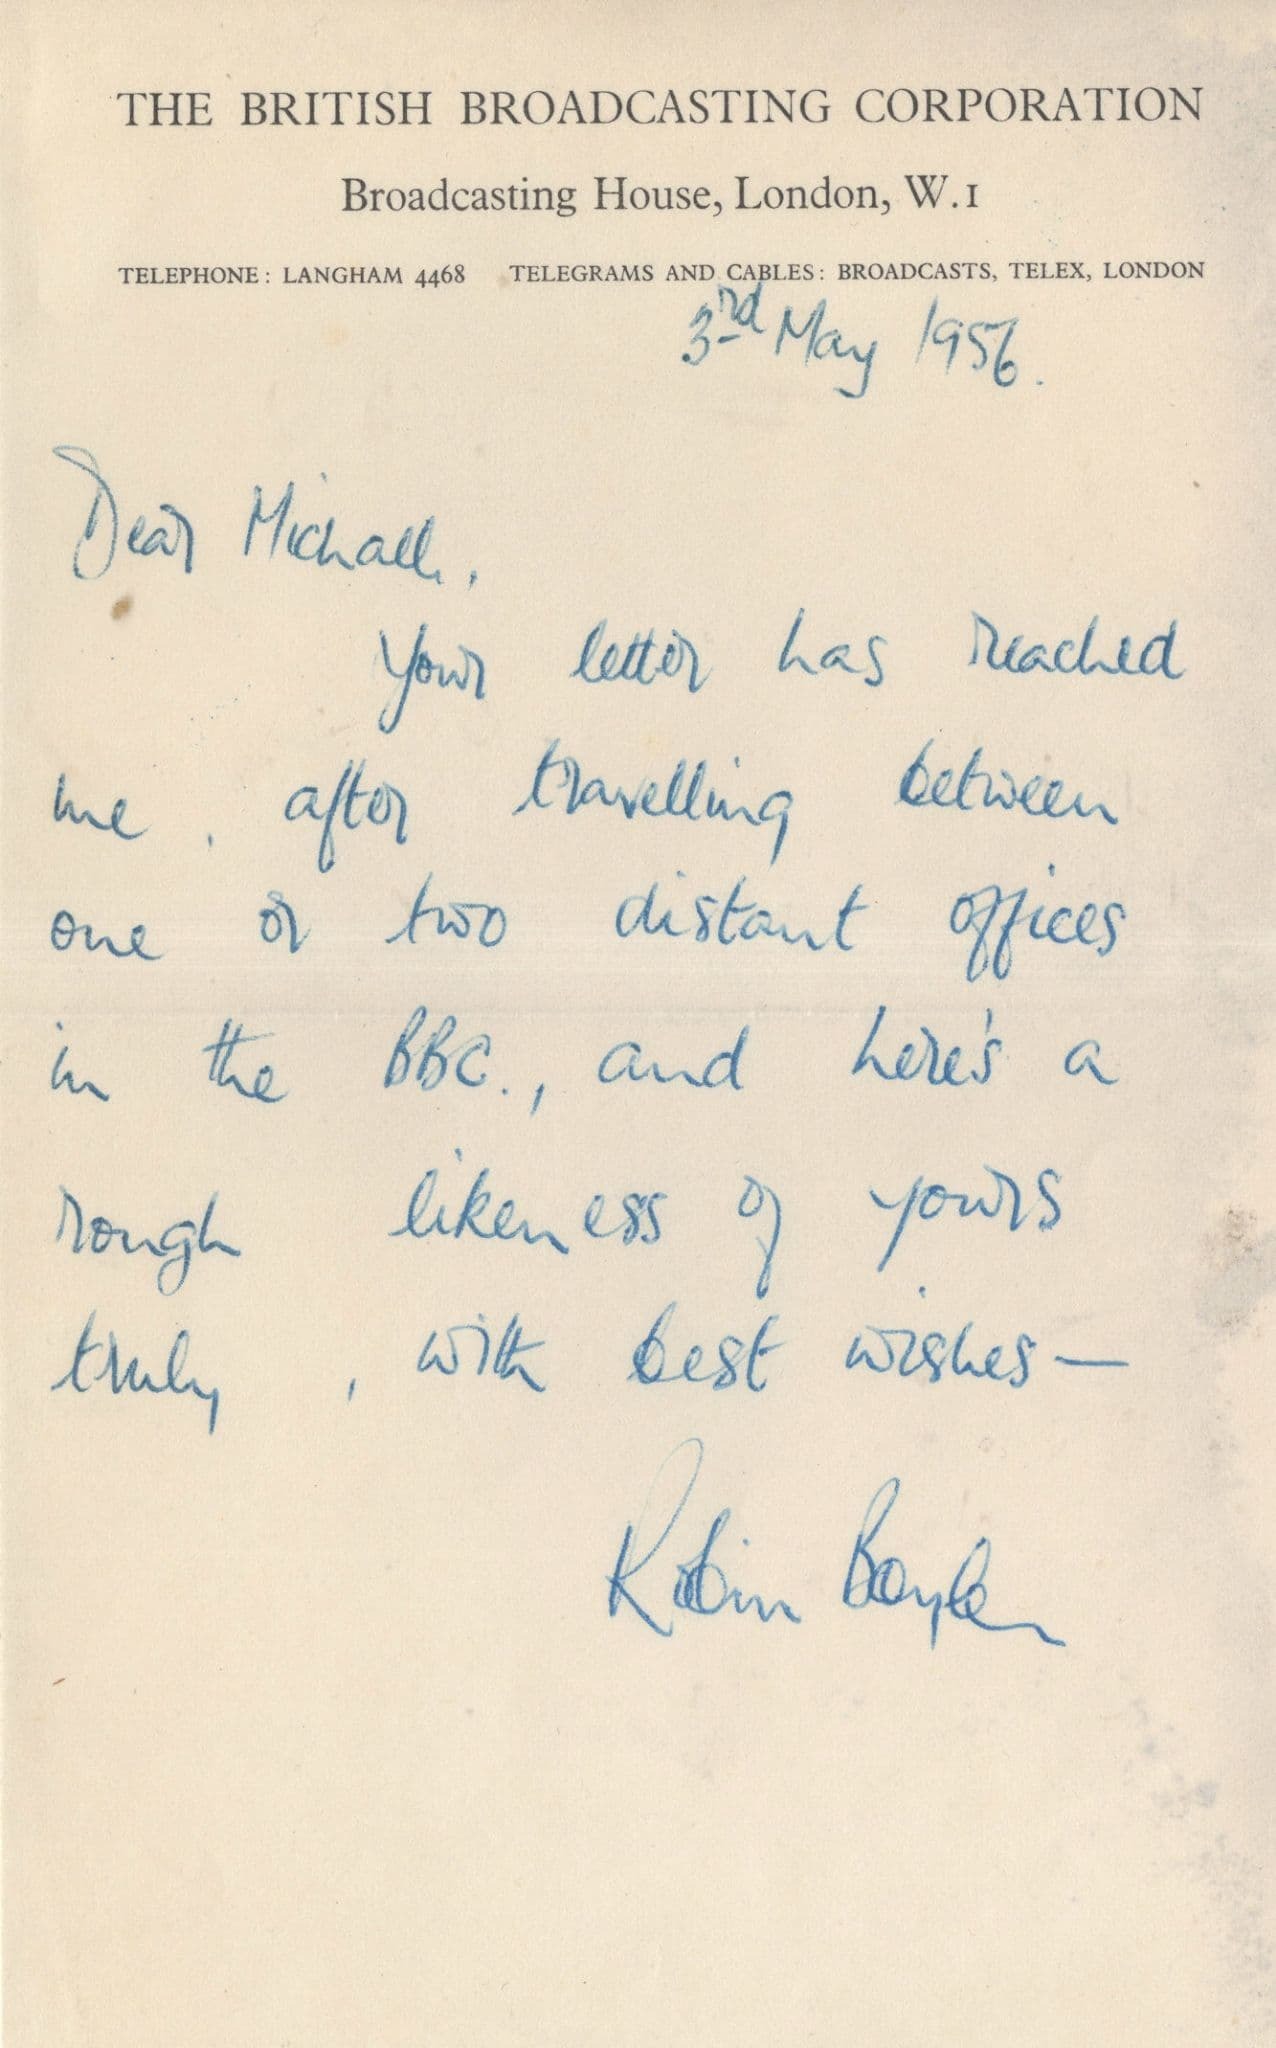 THE BRITISH BROADCASTING CORPORATION
Broadcasting House, London, W.1
TELEPHONE: LANGHAM 4468 TELEGRAMS AND CABLES: BROADCASTS, TELEX, LONDON
3rd May 1956.
Dear Michael,
Your letter has reached
me, after travelling between
one or two distant offices
in the BBC., and here's a
rough likeness of yours
truly, with best wishes—
Robin Boyle